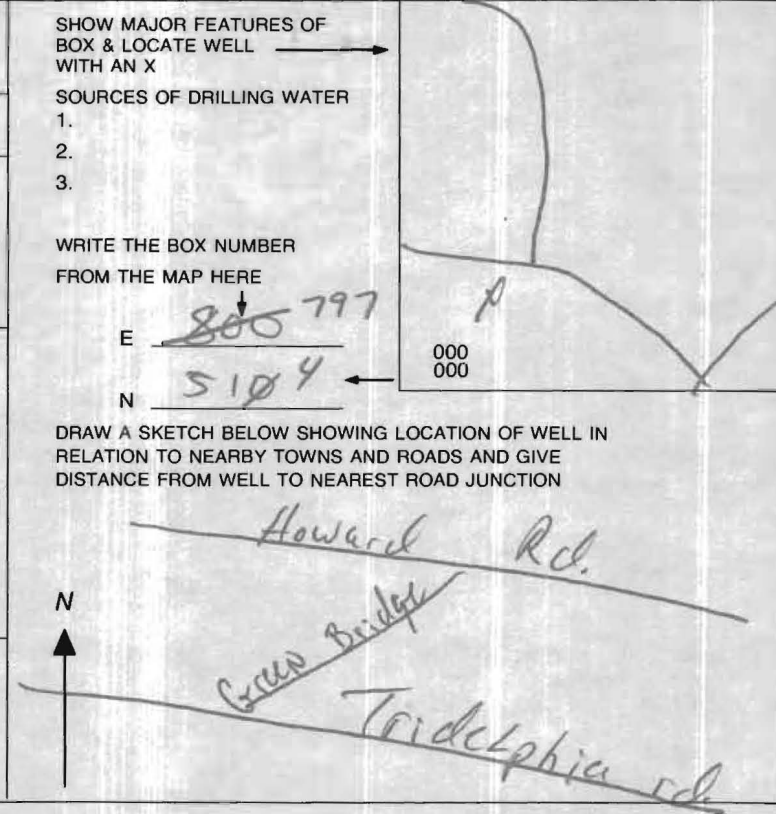 SHOW MAJOR FEATURES OF
BOX & LOCATE WELL
WITH AN X
SOURCES OF DRILLING WATER
1.
2.
3.
WRITE THE BOX NUMBER
FROM THE MAP HERE
E 800 797
N 510 4
000
000
DRAW A SKETCH BELOW SHOWING LOCATION OF WELL IN
RELATION TO NEARBY TOWNS AND ROADS AND GIVE
DISTANCE FROM WELL TO NEAREST ROAD JUNCTION
Howard Rd.
N
Green Bridge
Tridelphia rd.